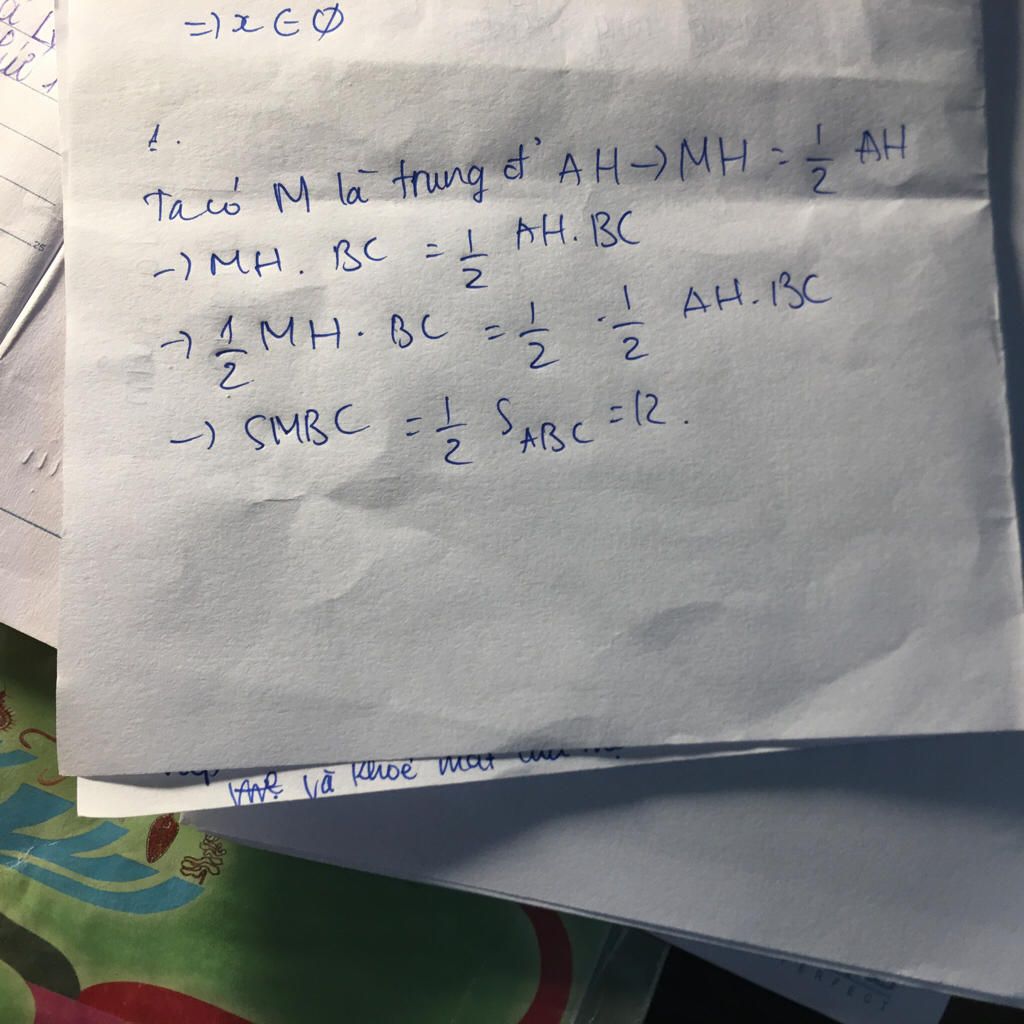 =) x ∈ Ø
1.
Ta có M là trung đ' AH -) MH = 1/2 AH
-) MH . BC = 1/2 AH . BC
-) 1/2 MH . BC = 1/2 . 1/2 AH . BC
-) SMBC = 1/2 S_ABC = 12 .
và khoẻ
PERFECT